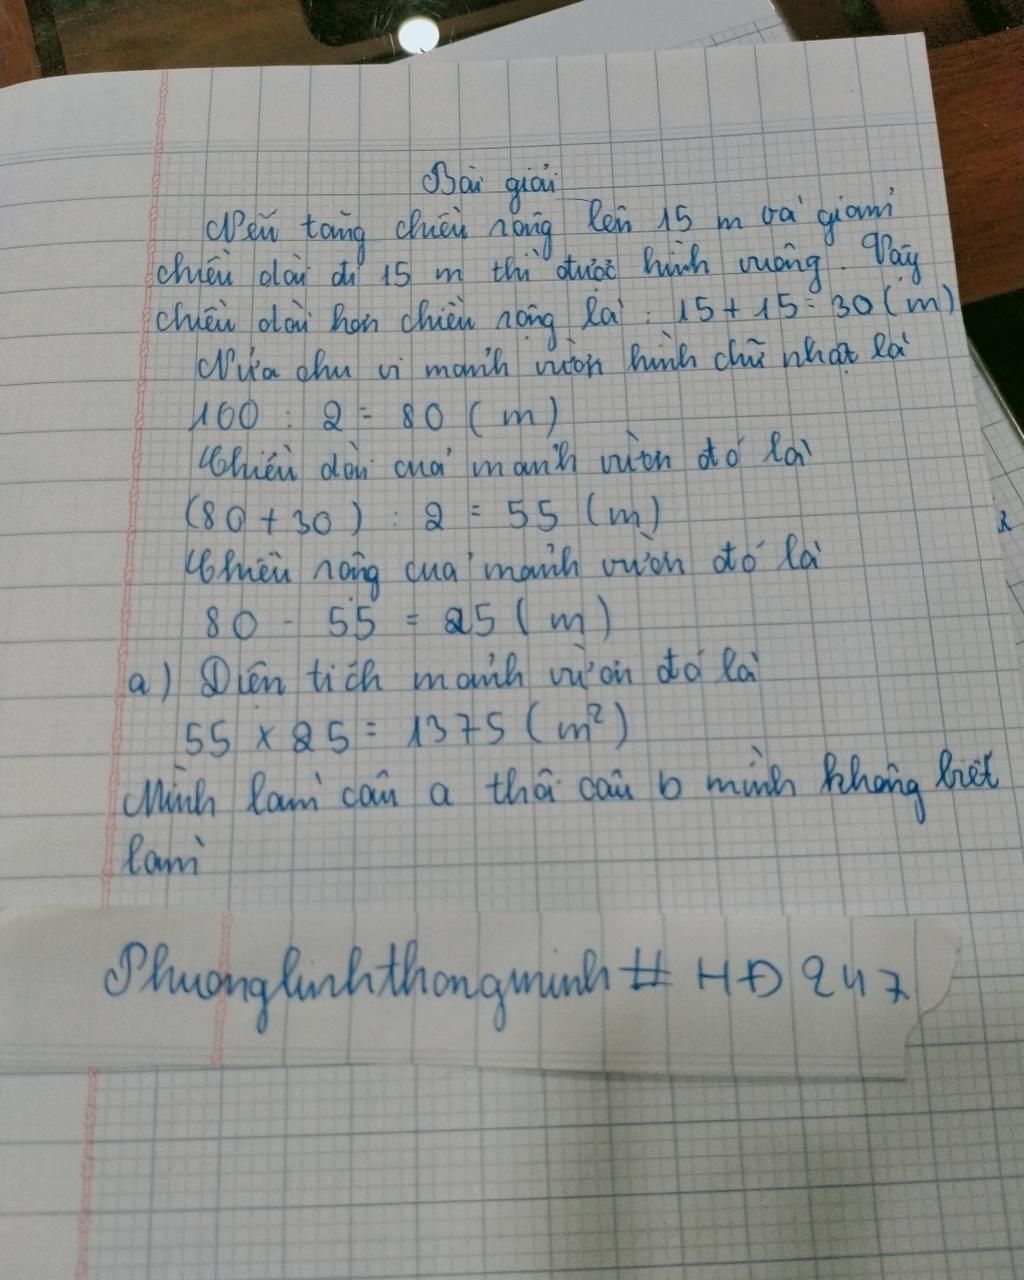 Bài giải
Nếu tăng chiều rộng lên 15 m và giảm
chiều dài đi 15 m thì được hình vuông. Vậy
chiều dài hơn chiều rộng là : 15 + 15 = 30 (m)
Nửa chu vi mảnh vườn hình chữ nhật là
160 : 2 = 80 (m)
Chiều dài của mảnh vườn đó là
(80 + 30) : 2 = 55 (m)
Chiều rộng của mảnh vườn đó là
80 - 55 = 25 (m)
a) Diện tích mảnh vườn đó là
55 x 25 = 1375 (m²)
Mình làm câu a thôi câu b mình không biết
làm
Phuonglinhthongminh # HĐ 247